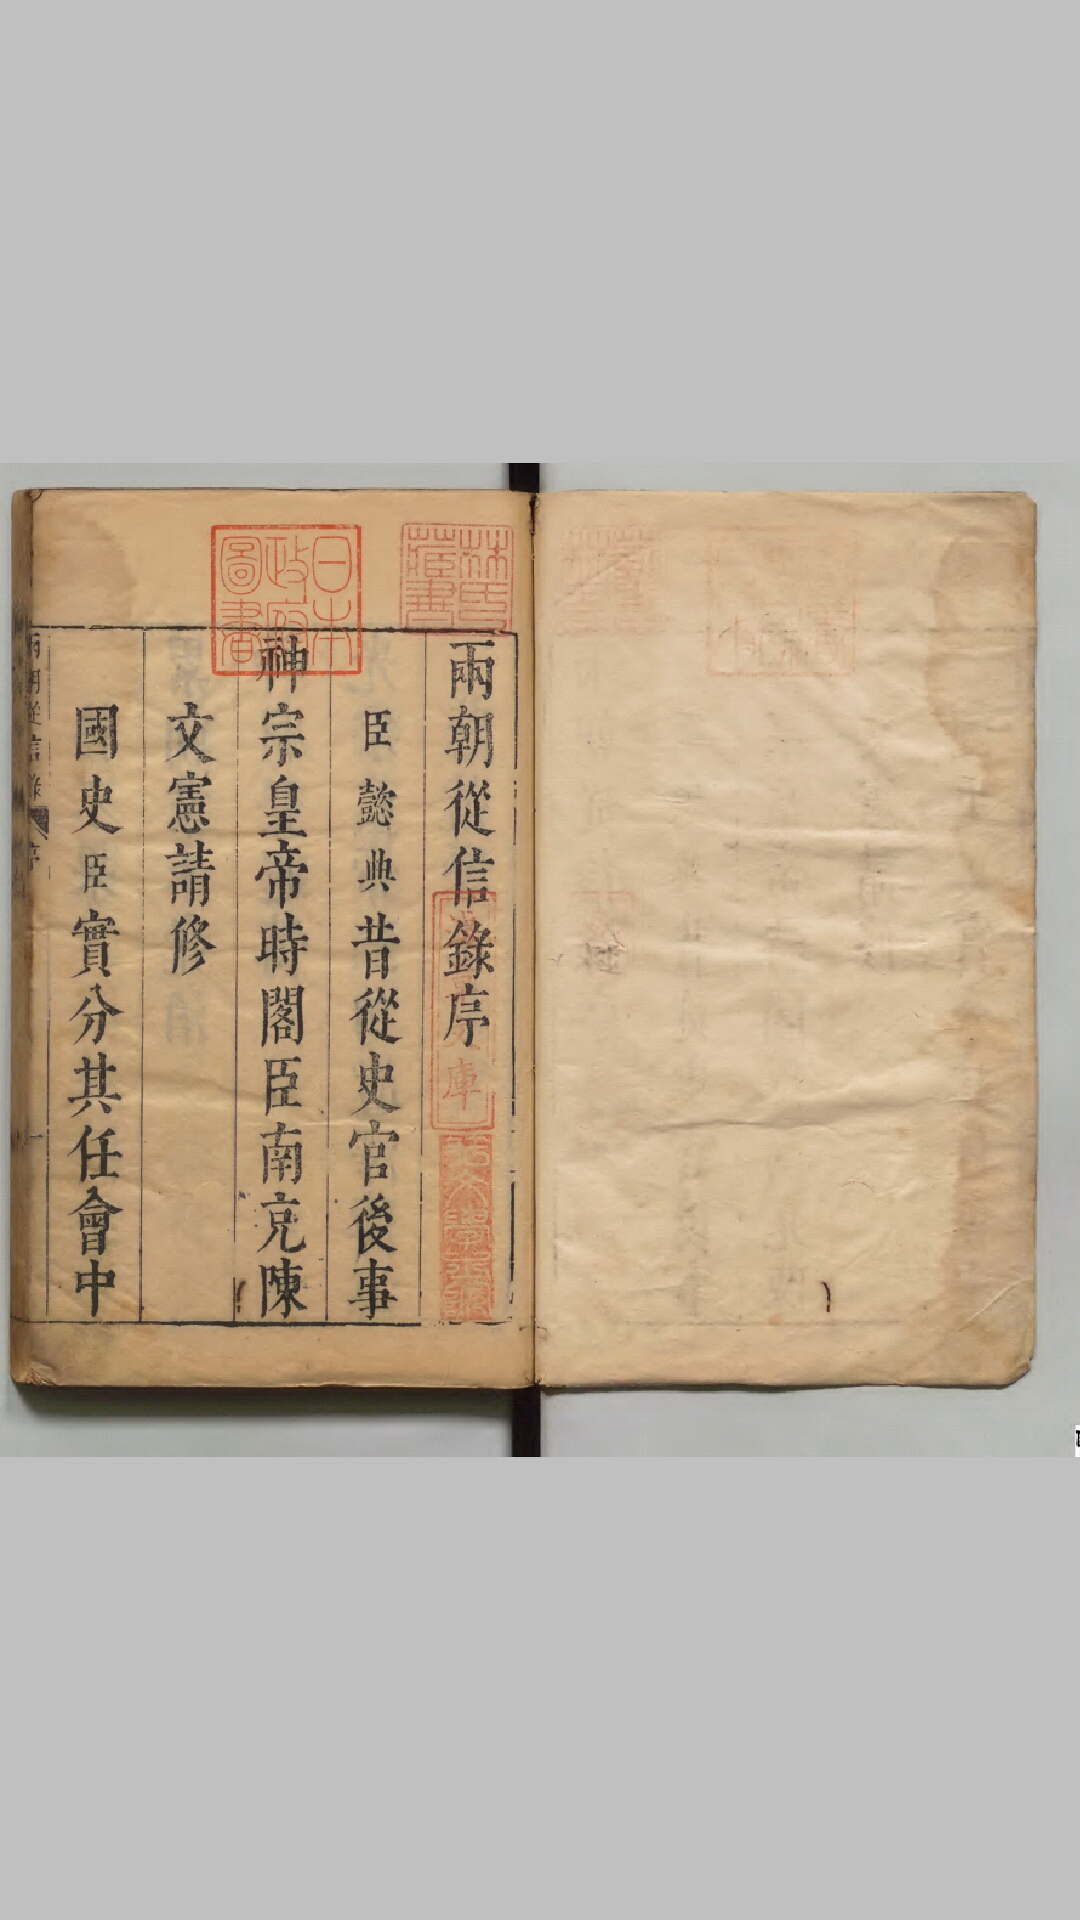 兩朝從信錄序
臣懿典昔從史官後事
神宗皇帝時閣臣南充陳
文憲請修
國史臣實分其任會中
兩朝從信錄
序
一
日本
政府
圖書
林氏
藏書